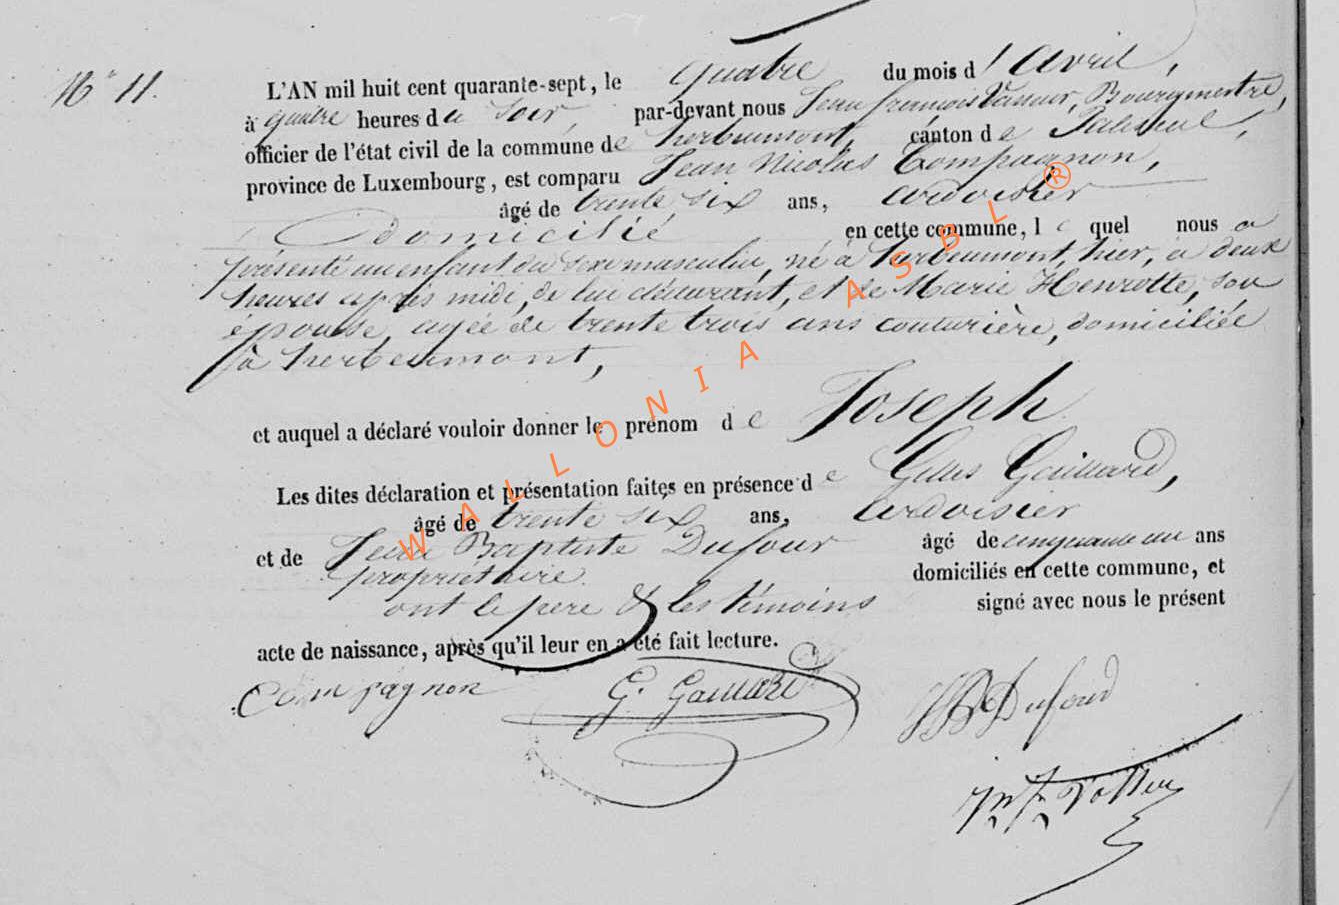 N° 11.
L'AN mil huit cent quarante-sept, le quatre du mois d'Avril,
à quatre heures du soir, par-devant nous Jean françois, Bourgmestre,
officier de l'état civil de la commune de herbeumont, canton de Paliseul,
province de Luxembourg, est comparu Jean Nicolas Compagnon,
âgé de trente six ans, ardoisier
domicilié en cette commune, lequel nous a
présenté un enfant du sexe masculin, né à herbeumont, hier, à deux
heures après midi, de lui déclarant, et de Marie Henrotte, son
épouse, agée de trente trois ans couturière, domiciliée
à herbeumont,
et auquel a déclaré vouloir donner le prénom de Joseph
Les dites déclaration et présentation faites en présence de Gilles Gaillard,
âgé de trente six ans, ardoisier
et de Jean Baptiste Dufour âgé de cinquante un ans
propriétaire domiciliés en cette commune, et
ont le père & les témoins signé avec nous le présent
acte de naissance, après qu'il leur en a été fait lecture.
Compagnon G. Gaillard JB Dufour
WALLONIA ASBL ®